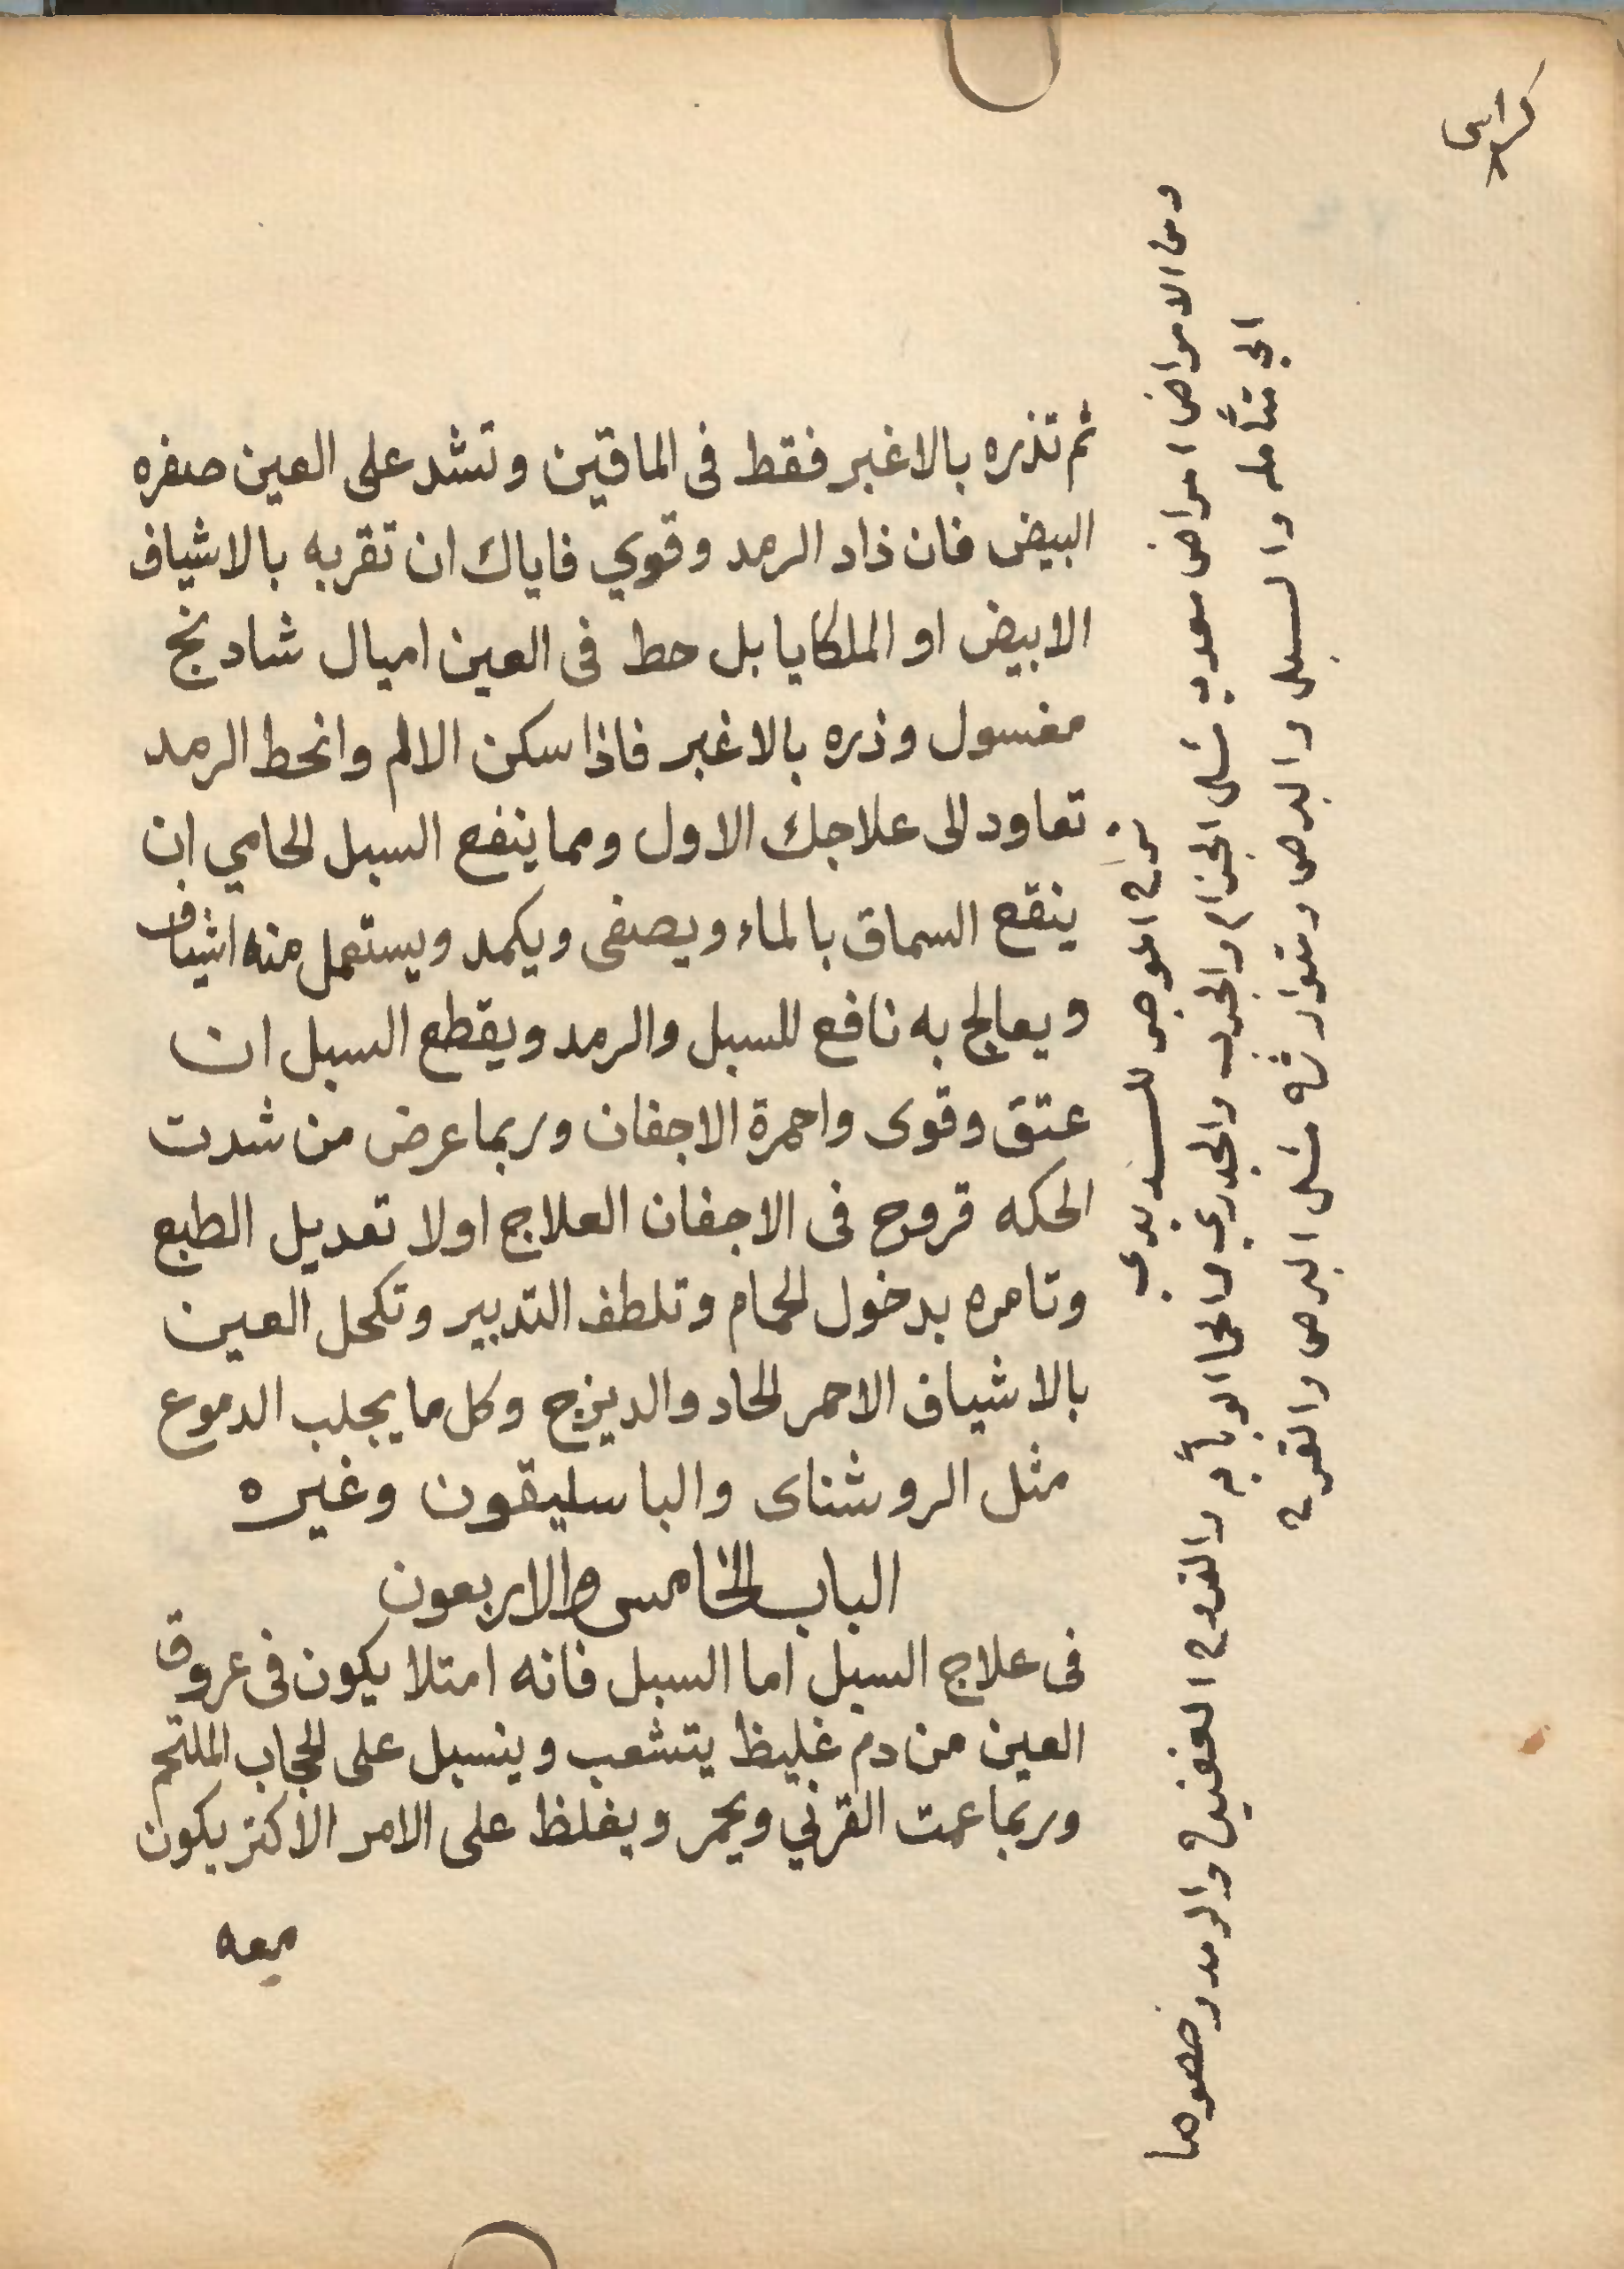 كراس
ثم تذره بالاغبر فقط فى الماقين وتشد على العين صفره
البيض فان ذاد الرمد وقوي فاياك ان تقربه بالاشياف
الابيض او الملكايا بل حط فى العين اميال شادنج
مغسول وذره بالاغبر فاذا سكن الالم وانحط الرمد
تعاود الى علاجك الاول ومما ينفع السبل الحامي ان
ينقع السماق بالماء ويصفى ويكمد ويستعمل منه اشياف
ويعالج به نافع للسبل والرمد ويقطع السبل ان
عتق وقوى واحمرة الاجفان وربما عرض من شدت
الحكه قروح فى الاجفان العلاج اولا تعديل الطبع
وتامره بدخول الحمام وتلطف التدبير وتكحل العين
بالاشياف الاحمر الحاد والديزج وكل ما يجلب الدموع
مثل الروشناى والباسليقون وغيره
الباب الخامس والاربعون
فى علاج السبل اما السبل فانه امتلا يكون فى عروق
العين من دم غليظ يتشعب وينسبل على الحجاب الملتحم
وربما عمت القرني ويحمر ويغلظ على الامر الاكثر يكون
معه
ومن الامراض امراض معدية مثل الجذام والجرب والجدري والحما الوبأيه والقروح العفنيه والرمد وخصوصا
الى متأمله والسبل والبرص ومتوارثه مثل البرص والقرع
شرح الموجز للسديدي